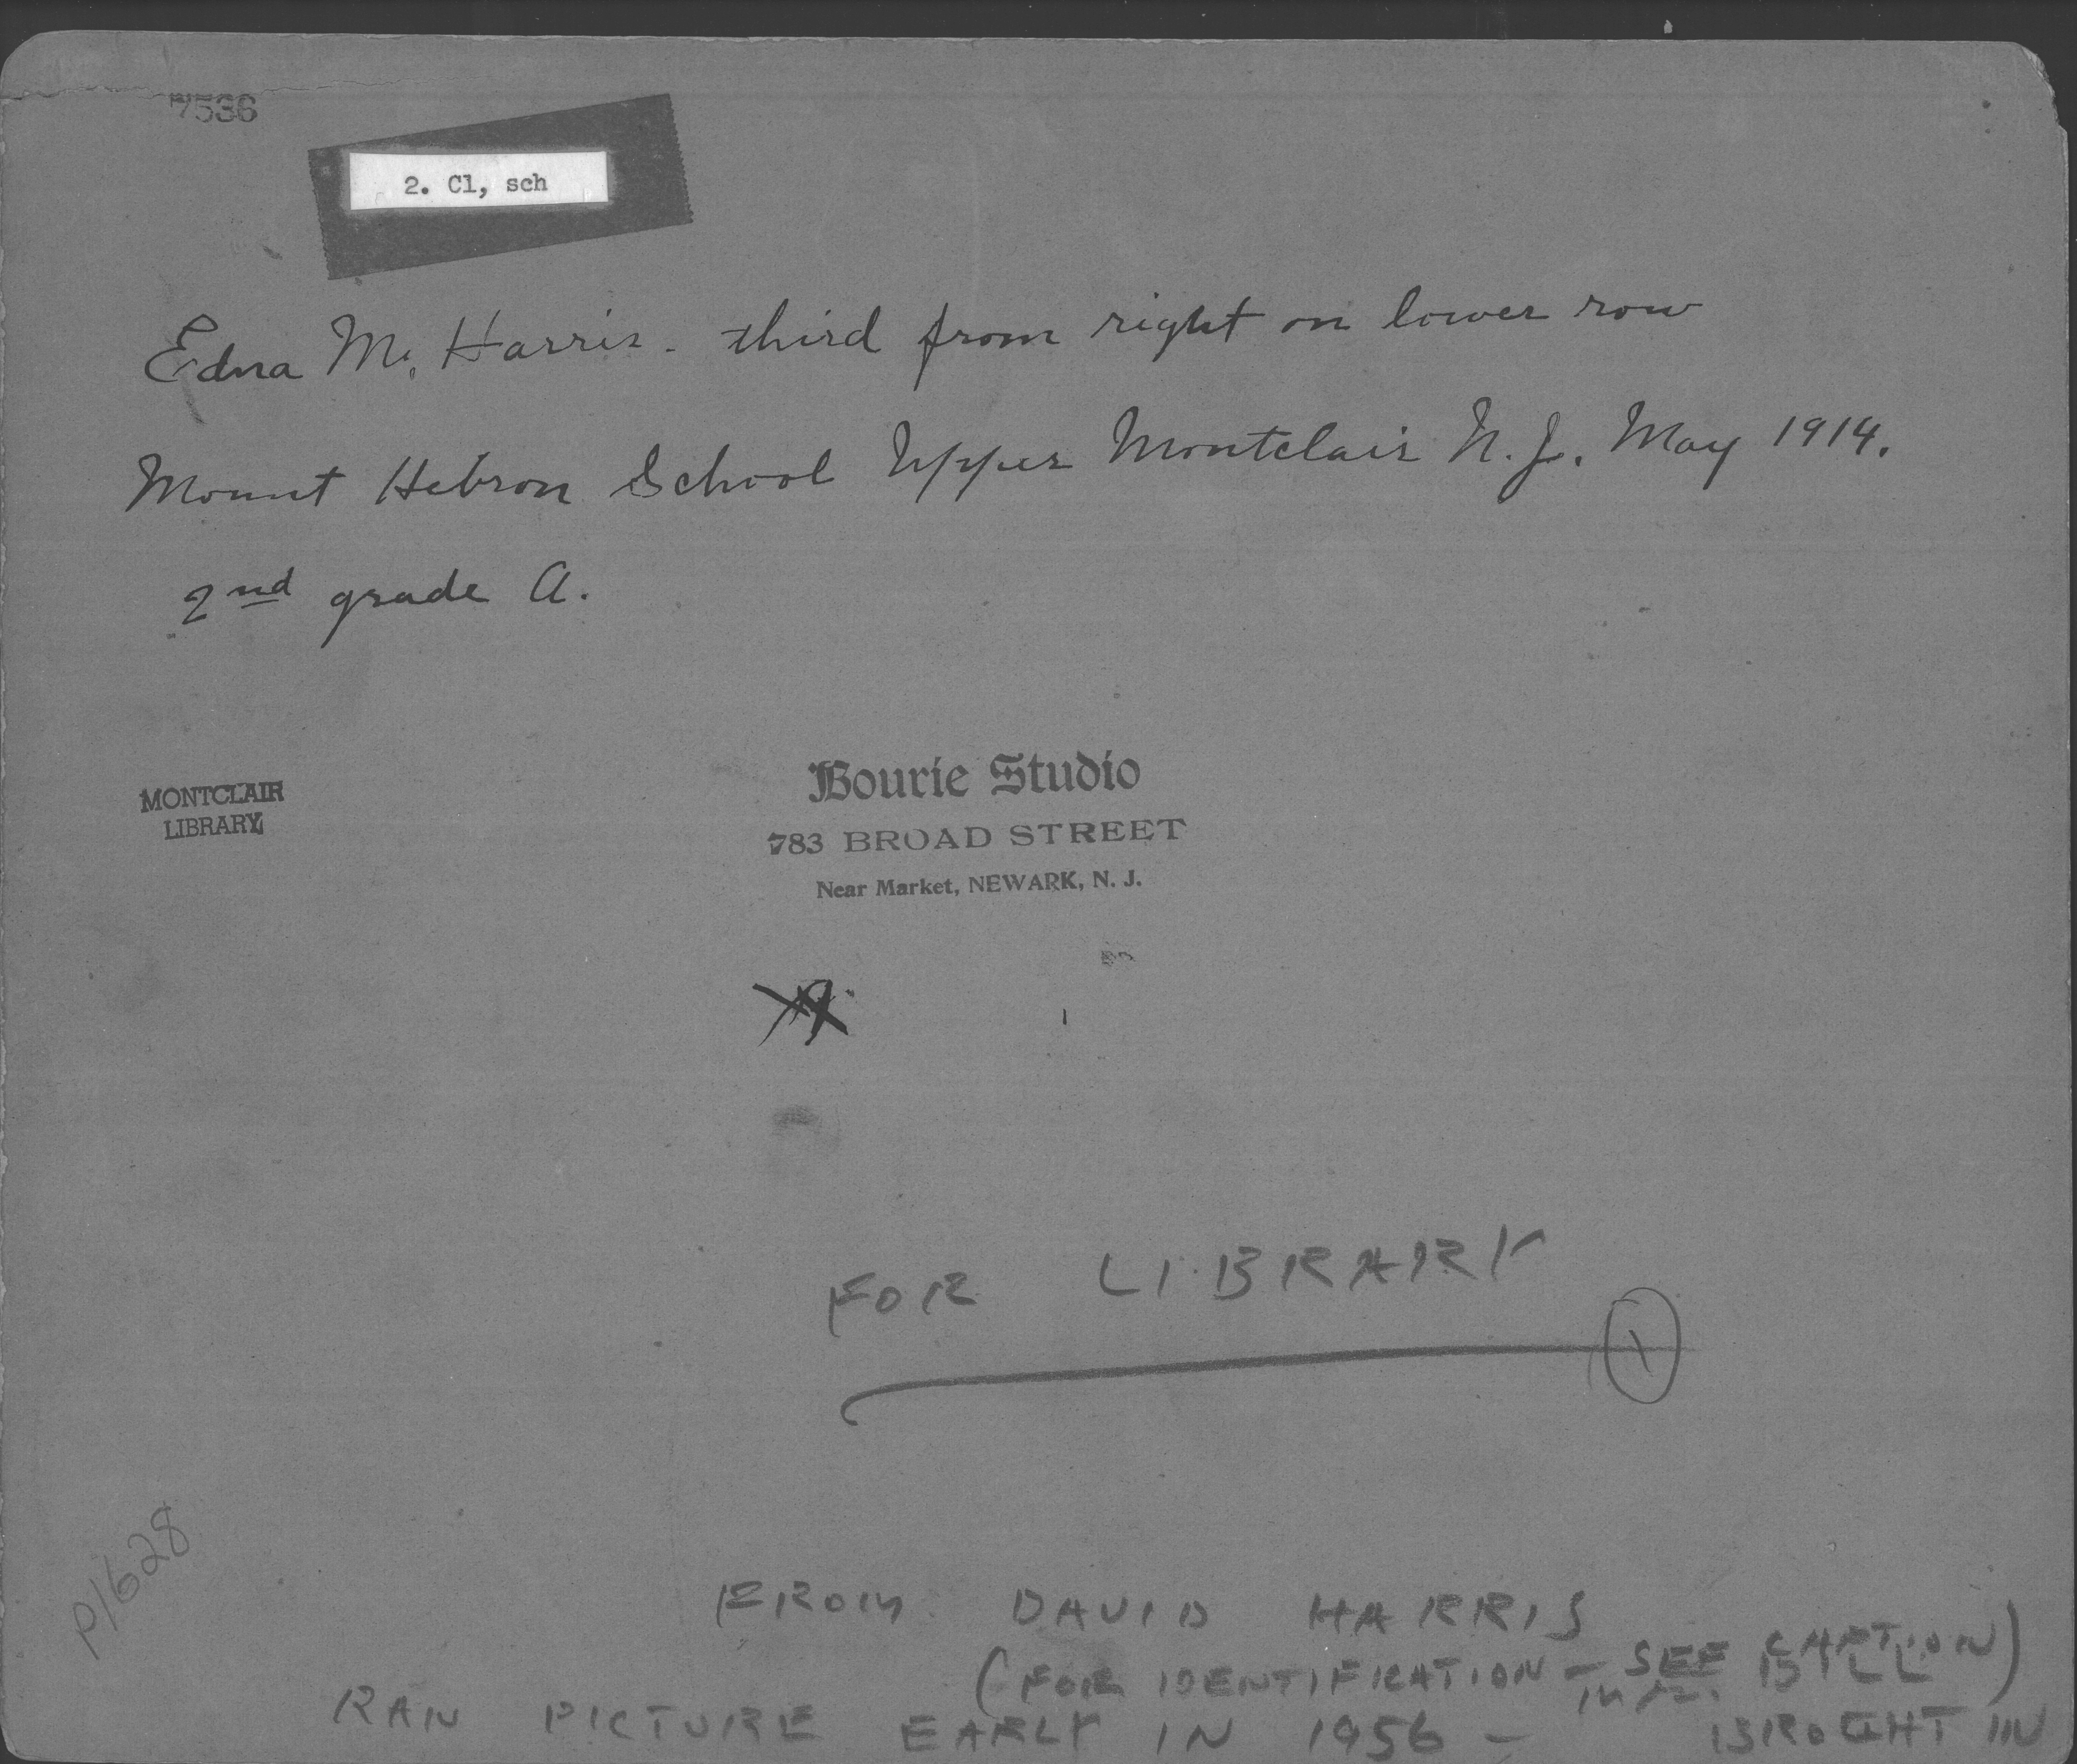 7536
2. Cl, sch
Edna M. Harris - third from right on lower row
Mount Hebron School Upper Montclair N.J. May 1914.
2nd grade A.
MONTCLAIR
LIBRARY
Bourie Studio
783 BROAD STREET
Near Market, NEWARK, N. J.
FOR LIBRARY
1
P1628
FROM DAVID HARRIS
(FOR IDENTIFICATION - SEE CAPTION)
RAN PICTURE EARLY IN 1956 - BROGHT IN